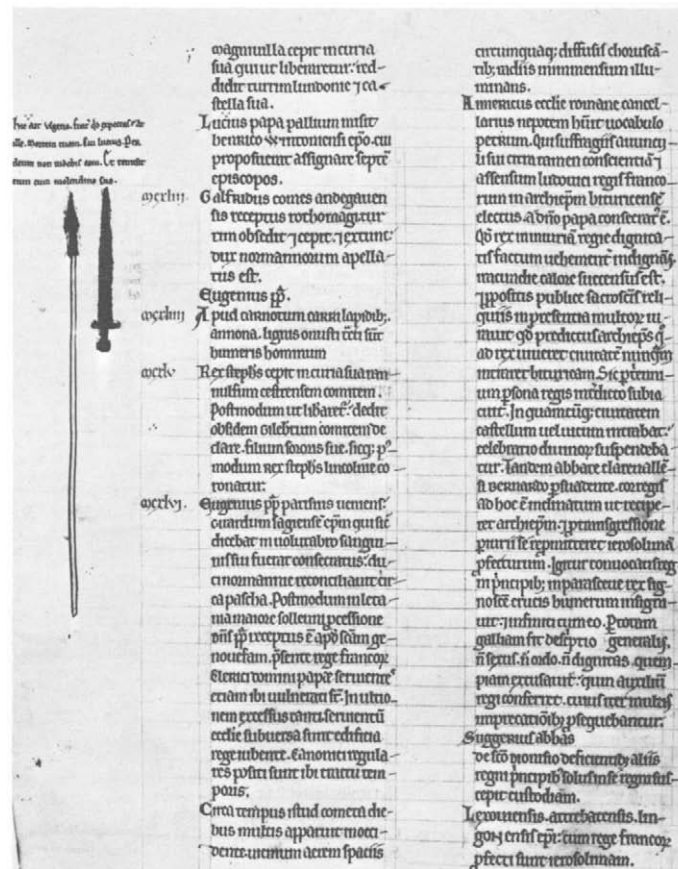 magnauilla cepit in curia
sua qui ut liberaretur: red-
didit turrim lundonie ⁊ ca-
stella sua.
Lucius papa pallium misit
henrico Wintoniensi ep̄o. cui
proposuerat assignare septē
episcopos.
mcxliii. Galfridus comes andegauen
sis receptus rothomagi. tur
rim obsedit ⁊ cepit. ⁊ extunc
dux normannorum apella-
tus est.
Eugenius pp̄.
mcxliiii Apud carnotum carri lapidib;
annona. lignis onusti tr̄cti sūt
humeris hominum
mcxlv Rex steph̄s cepit in curia sua ran
nulfum cestrensem comitem.
Postmodum ut libaret᷑: dedit
obsidem Gilebertum comitem de
clare. filium sororis sue. sicq; p᷒t
modum Rex steph̄s lincolnie co
ronatur.
mcxlvi. Eugenius pp̄ parisius ueniens:
Girardum sagiensē ep̄m qui sic̄
dicebat᷑ in uolutabro sangui
nis sui fuerat consecratus: du-
ci normannie reconciliauit cir
ca pascha. Postmodum in leta
nia maiore sollenni p̄cessione
dn̄s pp̄ receptus ē apud sc̄am ge-
nouefam. p̄sente rege francoꝝ
Clerici domini pape seruientes
etiam ibi uulnerati st̄. In ultio-
nem excessus tanti seruientū
ecclie subuersa sunt edificia
rege iubente. Canonici regula-
res positi sunt ibi eiuncti tem
poris.
Circa tempus istud cometa die-
bus multis apparuit in occi-
dente. uicinum aerem spaciis
circumquaq; diffusis choruscā-
tib; radiis in inmensum illu-
minans.
Aimericus ecclie romane cancel-
larius nepotem hūit uocabulo
petrum. Qui suffragiis auuncu
li sui citra tamen conscientiā ⁊
assensum ludouici regis franco
rum in archiep̄m bituricensē
electus. a dn̄o papa consecrat᷑ ē.
Qd̄ rex in iniuriā regie dignita-
tis factum uehement᷑ indignās.
iracundie calore succensus est.
⁊ p̄positis publice sacrosc̄is reli-
quiis in presentia multoꝝ iu-
rauit qd̄ predictus archiep̄s q̄-
ad rex uiueret ciuitatē nunq̄m
intraret bituricam. Sic p̄ trienni-
um p̄sona regis int̄dicto subia
cuit. In quamcūq; ciuitatem
castellum uel uicum intrabat:
celebratio diuinoꝝ suspendeba
tur. Tandem abbate clareuall᷑-
si bernardo p̄suadente. cor regis
ad hoc ē inclinatum ut recipe-
ret archiep̄m. ⁊ p̄ transgressione
iurii se repmitteret ierosolimā
p̄fecturum. Igitur conuocatis reg
ni p̄ncipib; in parasceue rex sig-
no sc̄e crucis humerum insigni-
uit: ⁊ infiniti cum eo. Per totam
galliam fit desc̄ptio generalis.
n̄ sexus. n̄ ordo. n̄ dignitas. quem-
piam excusauit: quin auxiliū
regi conferret. cuius iter multis
imprecationib; p̄sequebantur.
Suggerius abbas
de sc̄o dionisio deficientib; aliis
regni p̄ncipib; solus in se regni sus-
cepit custodiam.
Lexouiensis. attrebatensis. lin-
goɲensis ep̄i: cum rege francoꝝ
p̄fecti sunt ierosolimam.